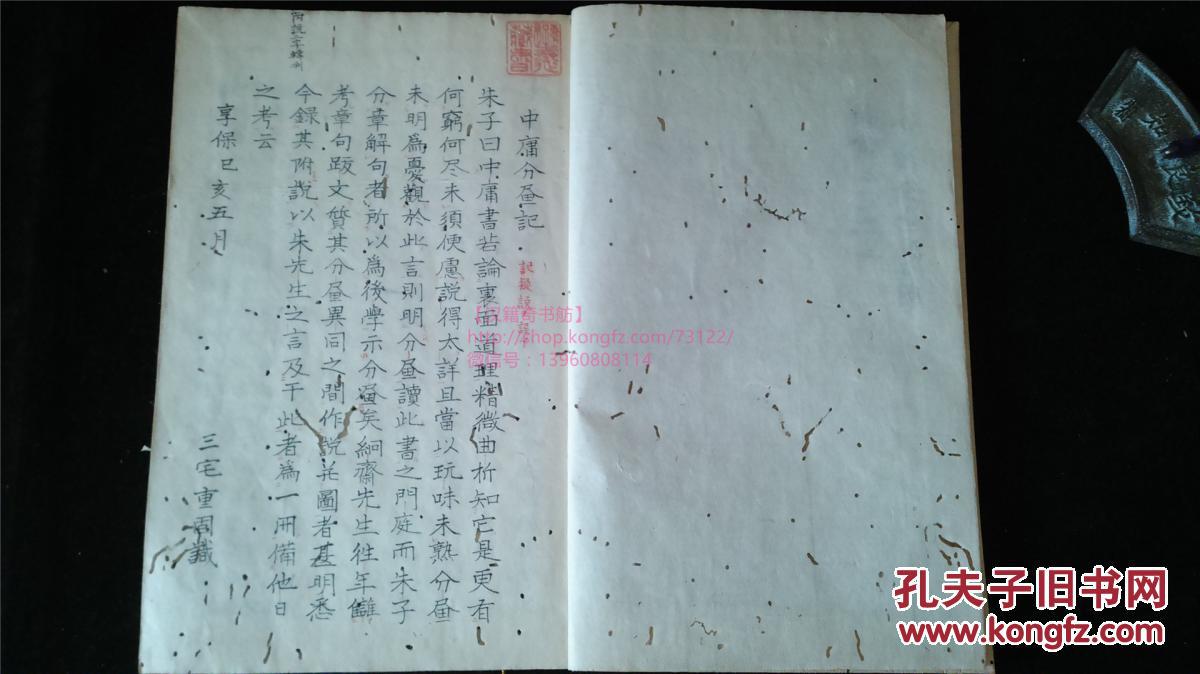 中庸分㽵記
朱子曰中庸書若論裏面道理精微曲折知它是更有
何窮何尽未須便慮説得太詳且當以玩味未熟分㽵
未明爲憂觀於此言則明分㽵讀此書之門庭而朱子
分章解句者所以爲後學示分㽵矣絅齋先生往年讎
考章句跋文質其分㽵異同之間作説并圖者甚明悉
今録其附説以朱先生之言及于此者爲一冊備他日
之考云
享保己亥五月
三宅重固識
【汉籍奇书舫】
http://shop.kongfz.com/73122/
微信号：13960808114
孔夫子旧书网
www.kongfz.com